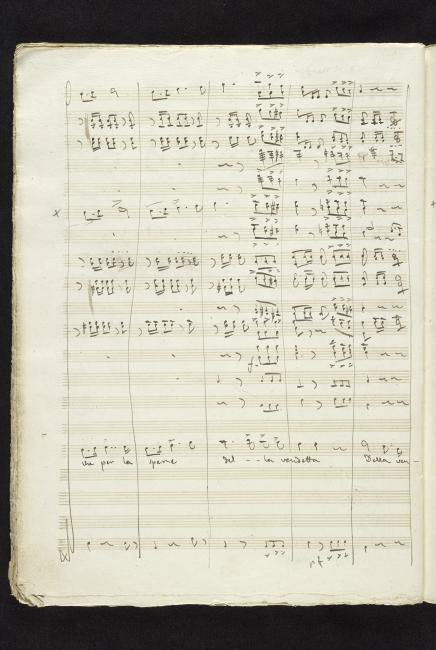 per la speme del - - la vendetta Della ven -